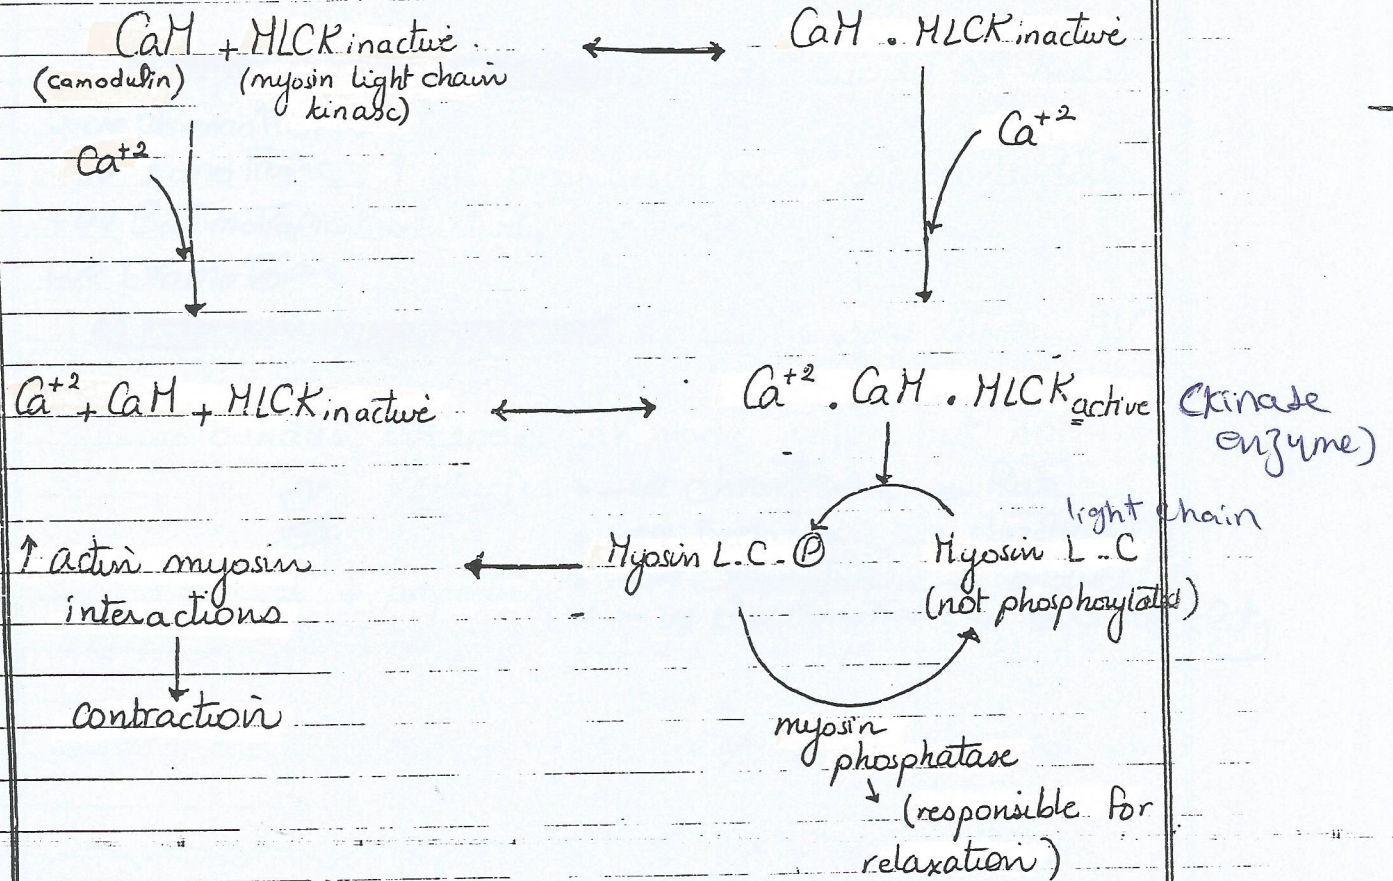 CaM + MLCK inactive
CaM . MLCK inactive
(camodulin)
(myosin light chain
kinase)
Ca+2
Ca+2
Ca+2 + CaM + MLCK inactive
Ca+2 . CaM . MLCK active
(kinase
enzyme)
light chain
↑ actin myosin
interactions
Myosin L.C - P
Myosin L - C
(not phosphorylated)
contraction
myosin
phosphatase
(responsible for
relaxation)